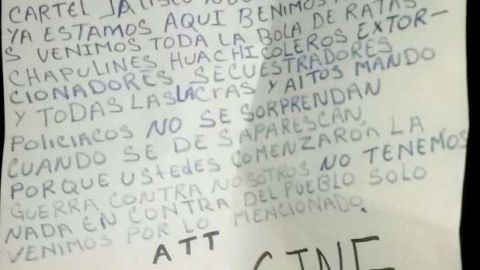 CARTEL JALISCO
YA ESTAMOS AQUI BENIMOS
S VENIMOS TODA LA BOLA DE RATAS
CHAPULINES HUACHICOLEROS EXTOR-
CIONADORES SECUESTRADORES
Y TODAS LAS LACRAS Y AltOS MANDO
POLICIACOS NO SE SORPRENDAN
CUANDO SE DESAPARESCAN,
PORQUE UStEDES COMENZARON LA
GUERRA CONTRA NOSOTROS NO TENEMOS
NADA EN CONTRA DEL PUEBLO SOLO
VENIMOS POR LO MENCIONADO.
ATT